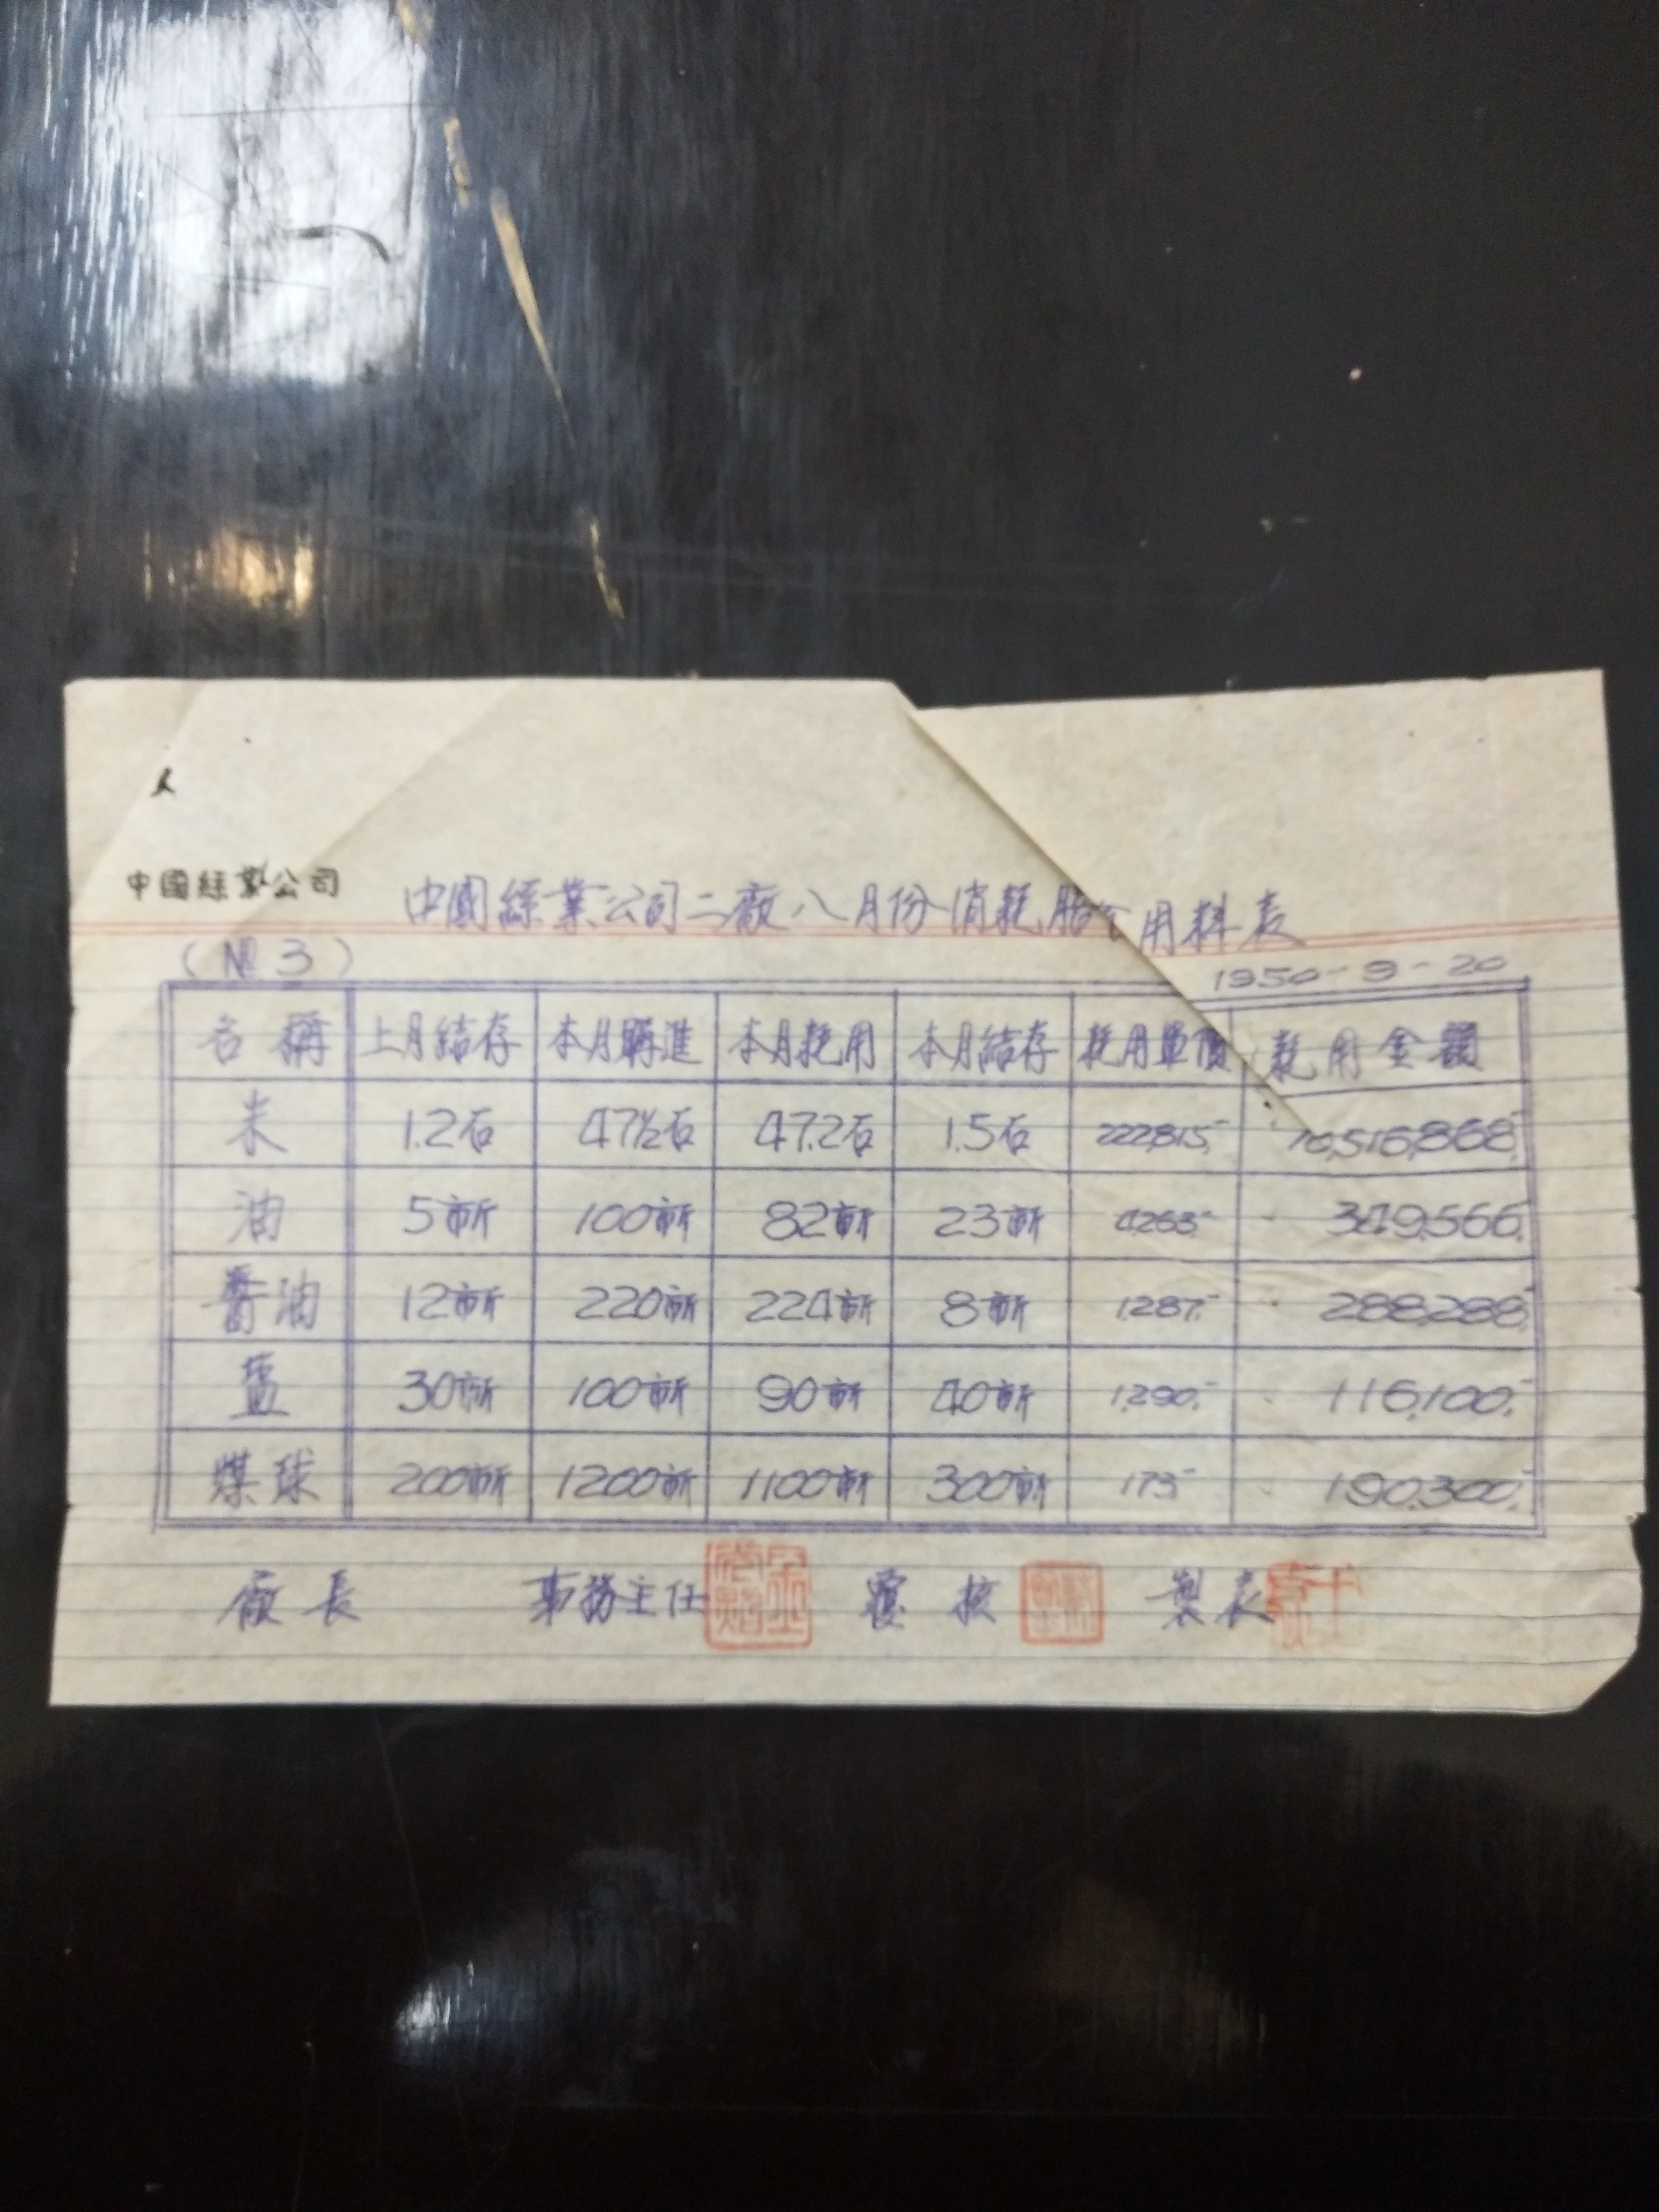 中國絲業公司
中國絲業公司二廠八月份消耗膳食用料表
(№ 3)
1950-9-20
名稱 上月結存 本月購進 本月耗用 本月結存 耗用單價 耗用金額
米 1.2石 47½石 47.2石 1.5石 222,815,- 10,516,868,-
油 5市斤 100市斤 82市斤 23市斤 4,263,- 349,566,-
醬油 12市斤 220市斤 224市斤 8市斤 1,287,- 288,288,-
鹽 30市斤 100市斤 90市斤 40市斤 1,290,- 116,100,-
煤球 200市斤 1200市斤 1100市斤 300市斤 173- 190,300,-
廠長 事務主任 覆核 製表